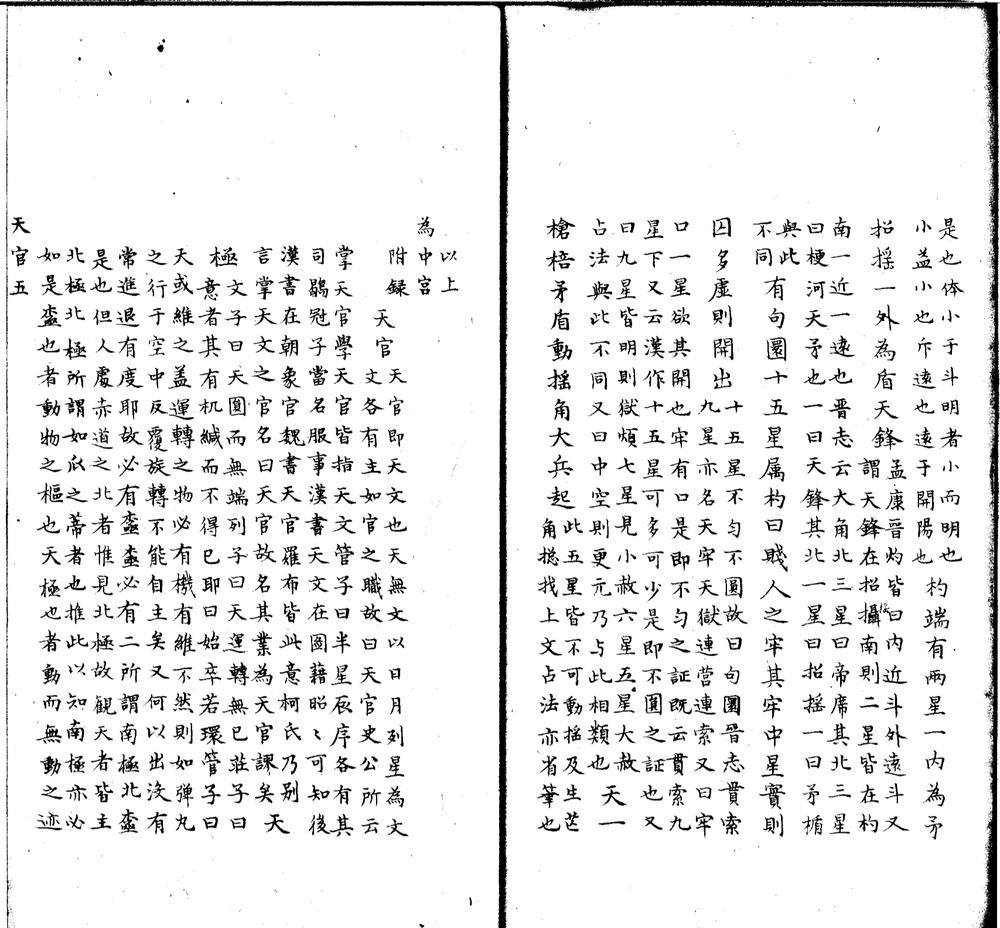 是也体小于斗明者小而明也
小益小也斥遠也遠于開陽也
杓端有兩星一内為矛
招揺一外為盾天鋒
孟康晋灼皆曰内近斗外遠斗又
謂天鋒在招攝南則二星皆在杓
南一近一遠也晋志云大角北三星曰帝席其北三星
曰梗河天矛也一曰天鋒其北一星曰招揺一曰矛楯
與此
不同
有句圜十五星属杓曰賤人之牢其牢中星實則
囚多虚則開出
十五星不匀不圓故曰句圜晋志貫索
九星亦名天牢天獄連営連索又曰牢
口一星欲其開也牢有口是即不匀之証既云貫索九
星下又云漢作十五星可多可少是即不圓之証也又
曰九星皆明則獄煩七星見小赦六星五星大赦
占法與此不同又曰中空則更元乃与此相類也
天一
槍棓矛盾動揺角大兵起
此五星皆不可動揺及生芒
角捴找上文占法亦省筆也
以上
為中宮
附録
天官
天官即天文也天無文以日月列星為文
文各有主如官之職故曰天官史公所云
掌天官學天官皆指天文管子曰半星辰序各有其
司鶡冠子當名服事漢書天文在圖藉昭〻可知後
漢書在朝象官魏書天官羅布皆此意柯氏乃别
言掌天文之官名曰天官故名其業為天官謬矣
天
極
文子曰天圓而無端列子曰天運轉無已荘子曰
意者其有机緘而不得已耶曰始卒若環管子曰
天或維之盖運轉之物必有機有維不然則如弾丸
之行于空中反覆旋轉不能自主矣又何以出没有
常進退有度耶故必有必有二所謂南極北
是也但人處赤道之北者惟見北極故観天者皆主
北極北極所謂如瓜之蒂者也推此以知南極亦必
如是也者動物之樞也天極也者動而無動之迹
天官五